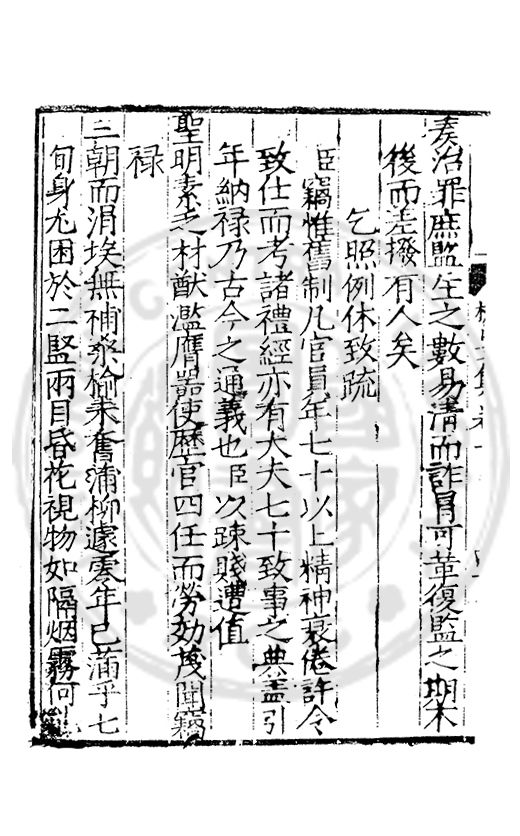 奏治罪庶監生之數易清而詐冒可革復監之期不
後而差撥有人矣
乞照例休致疏
臣竊惟舊制凡官員年七十以上精神衰倦許令
致仕而考諸禮經亦有大夫七十致事之典蓋引
年納禄乃古今之通義也臣以疎賤遭值
聖明素乏材猷濫膺器使歷官四任而勞効蔑聞竊
禄
三朝而涓埃無補桑榆未奮蒲柳遽零年已滿乎七
旬身尤困於二竪兩目昏花視物如隔烟霧何